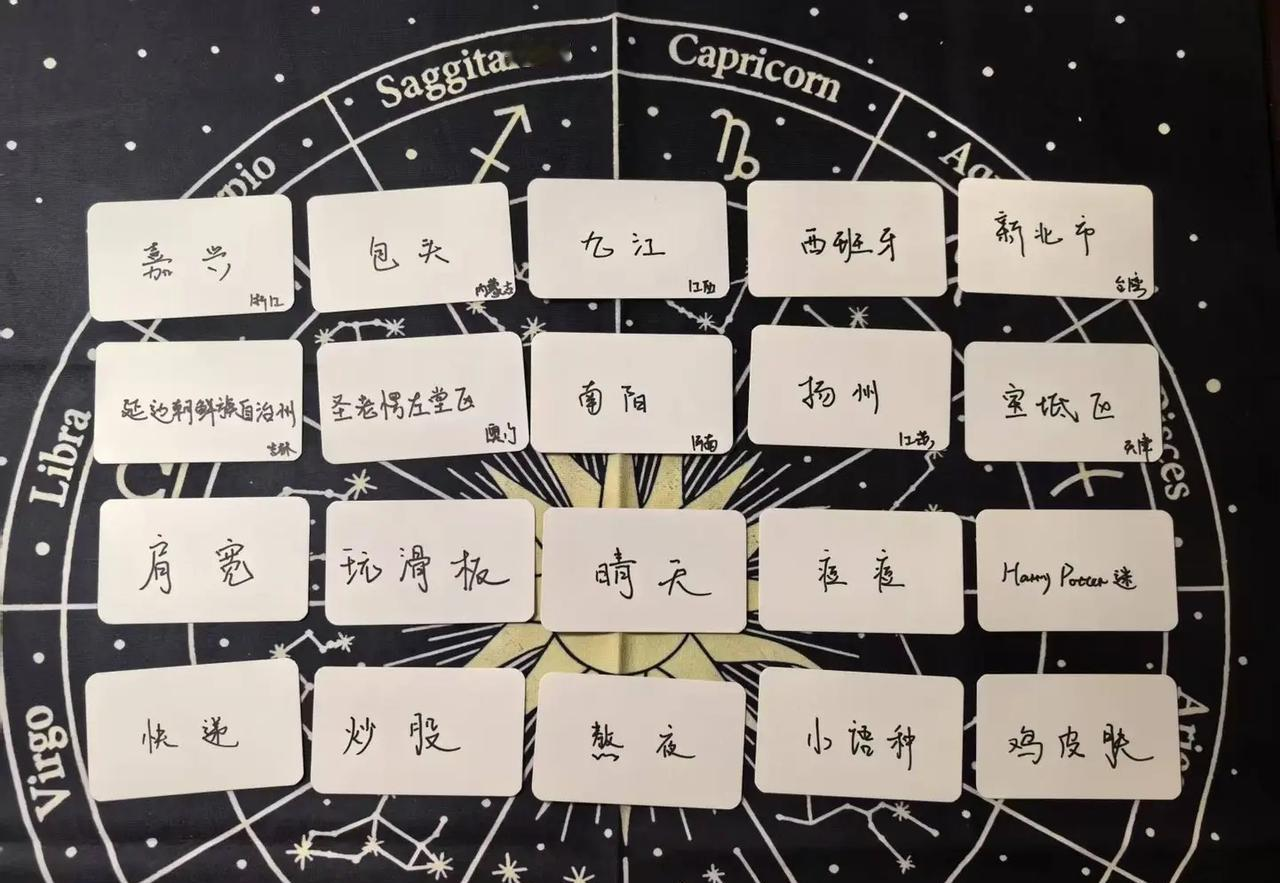 Saggita
Capricorn
rpio
Aq
嘉兴
浙江
包头
内蒙古
九江
江西
西班牙
新北市
台湾
Libra
延边朝鲜族自治州
吉林
圣老愣左堂区
澳门
南阳
河南
扬州
江苏
宝坻区
天津
isces
肩宽
玩滑板
晴天
痘痘
Harry Potter迷
Virgo
快递
炒股
熬夜
小语种
鸡皮肤
Arie